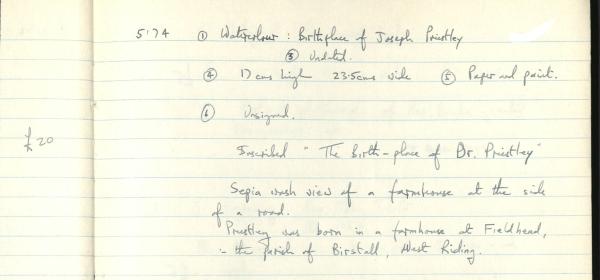 5.74 ① Watercolour : Birthplace of Joseph Priestley
③ Undated.
④ 17 cms high 23.5cms wide ⑤ Paper and paint.
⑥ Unsigned.
£20
Inscribed "The Birth-place of Dr. Priestley"
Sepia wash view of a farmhouse at the side
of a road.
Priestley was born in a farmhouse at Fieldhead,
in the parish of Birstall, West Riding.